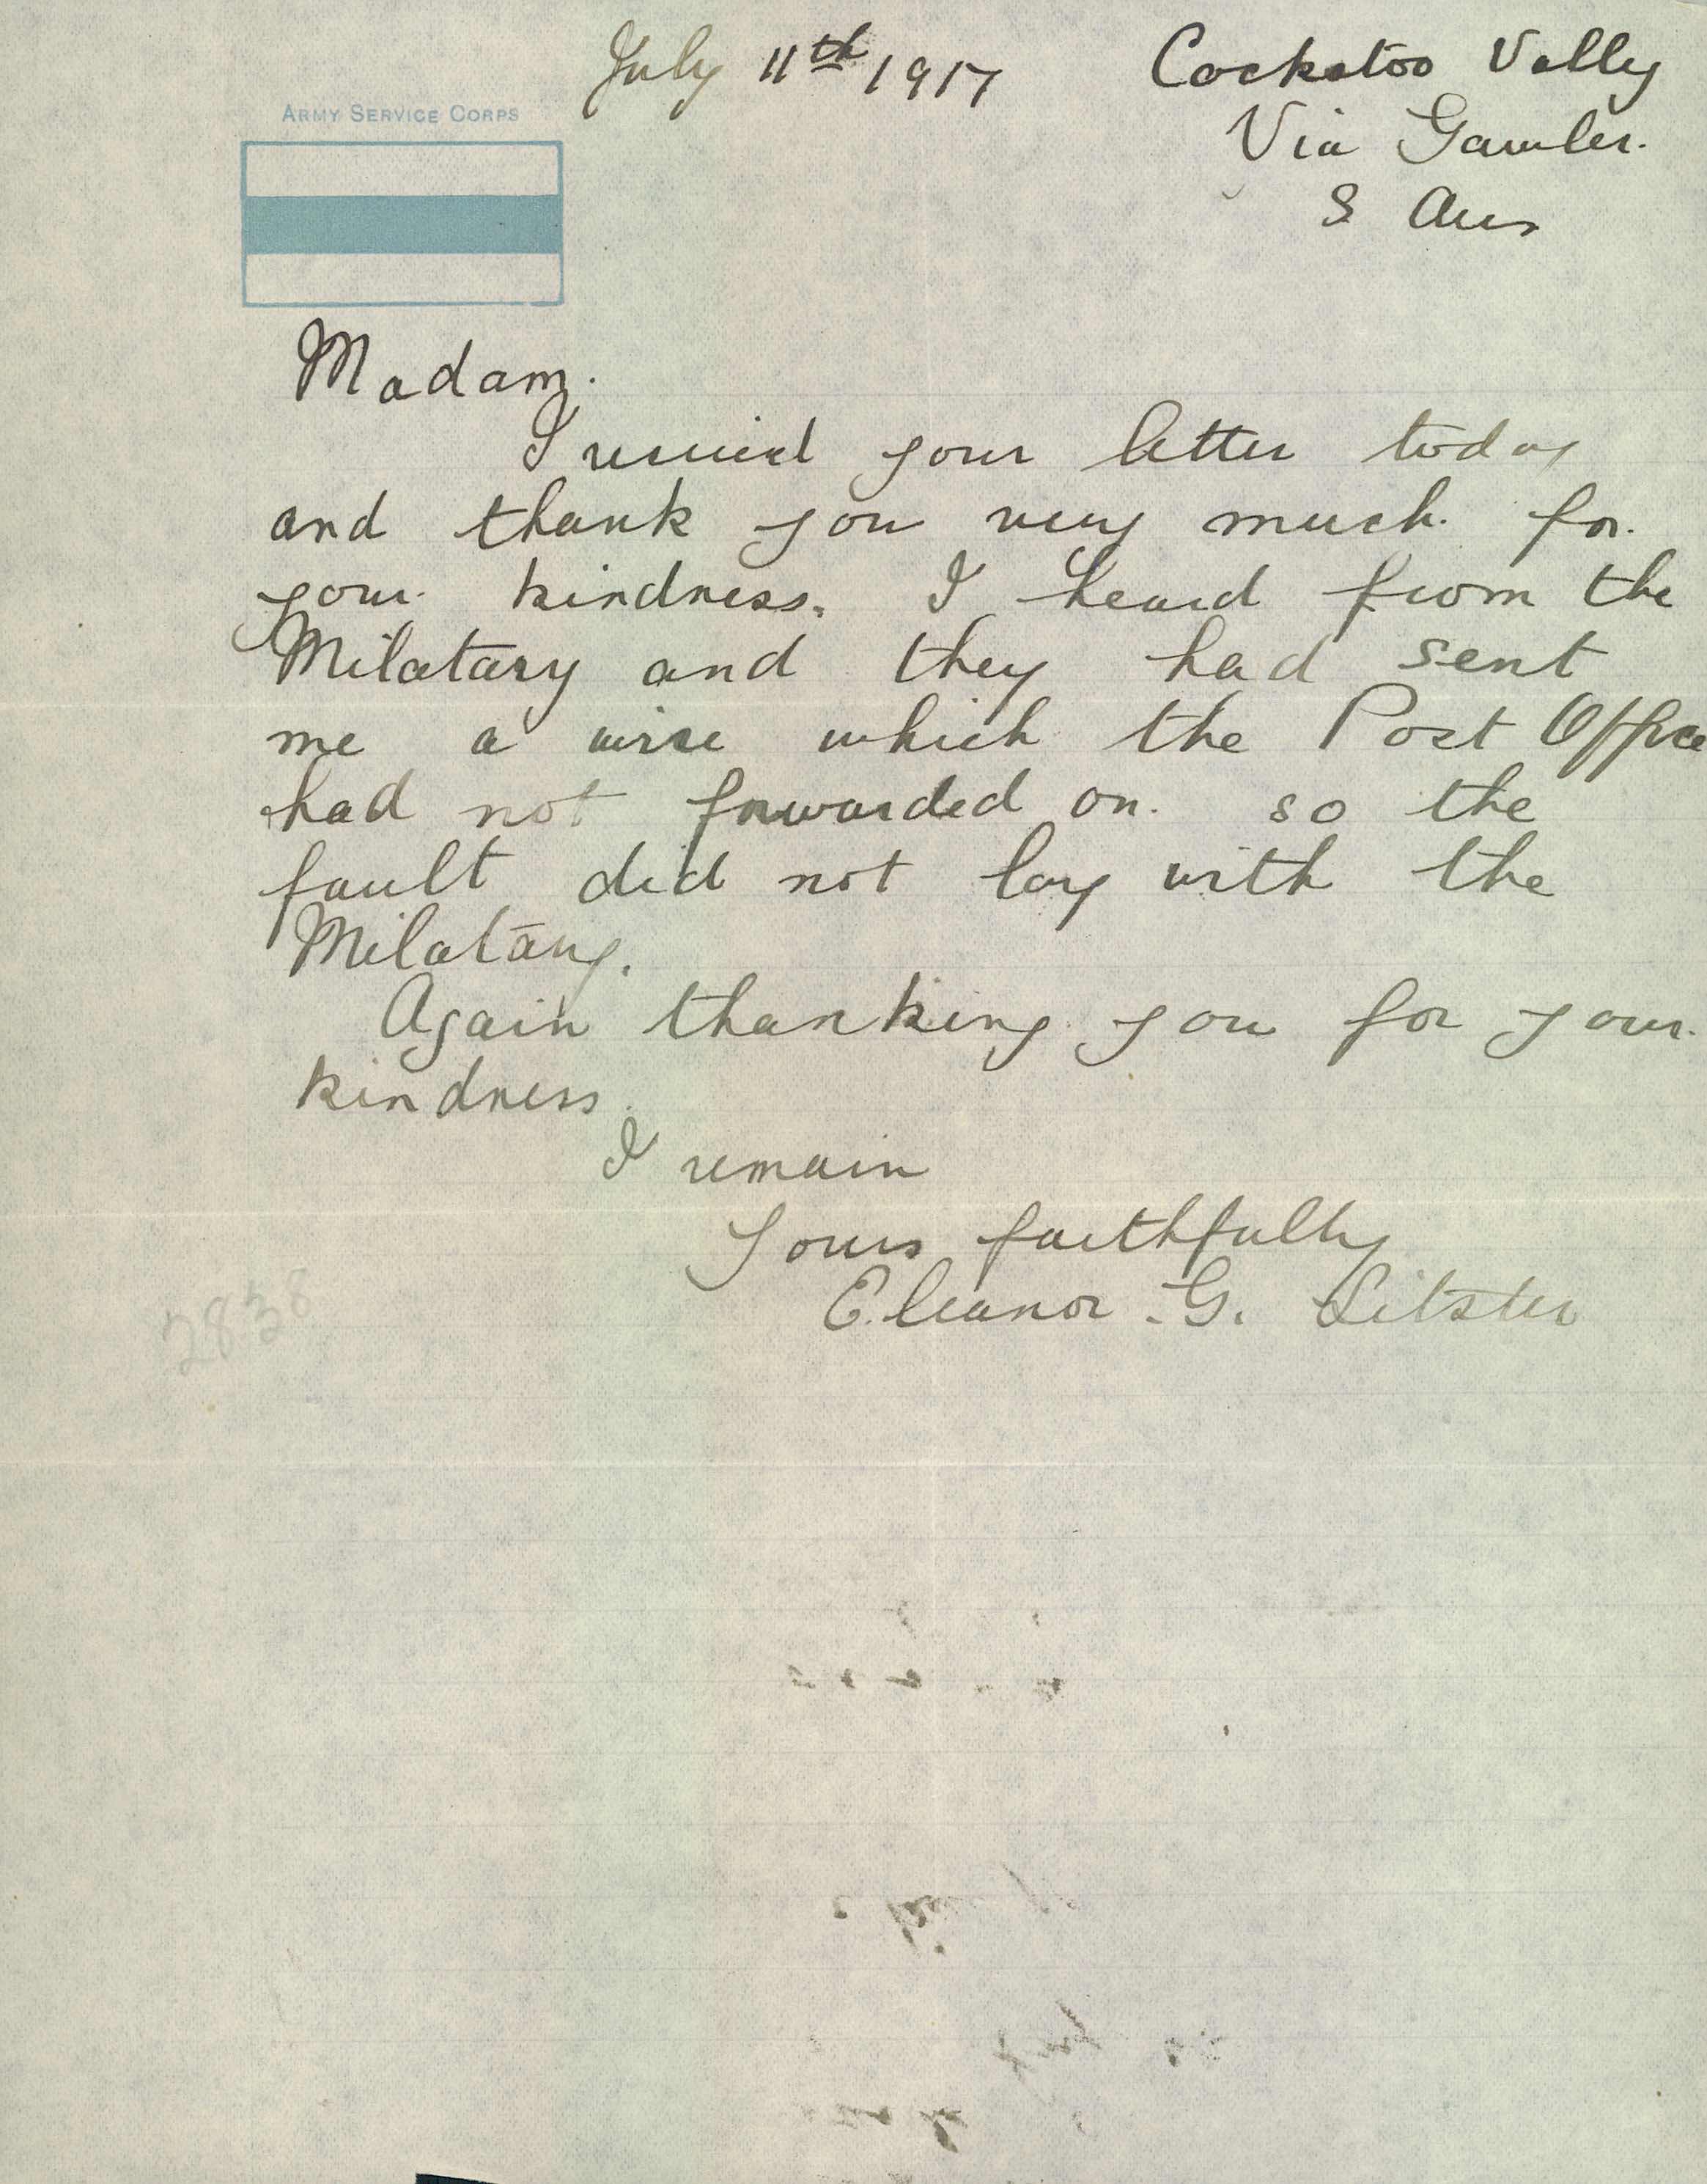 July 11th 1917
Cockatoo Vally
Via Gawler.
S Aus
ARMY SERVICE CORPS
Madam.
I received your letter today
and thank you very much for
your kindness. I heard from the
Milatary and they had sent
me a wire which the Post Office
had not forwarded on. so the
fault did not lay with the
Milatary.
Again thanking you for your
kindness.
I remain
Yours faithfully
Eleanor. G. Litster
2838